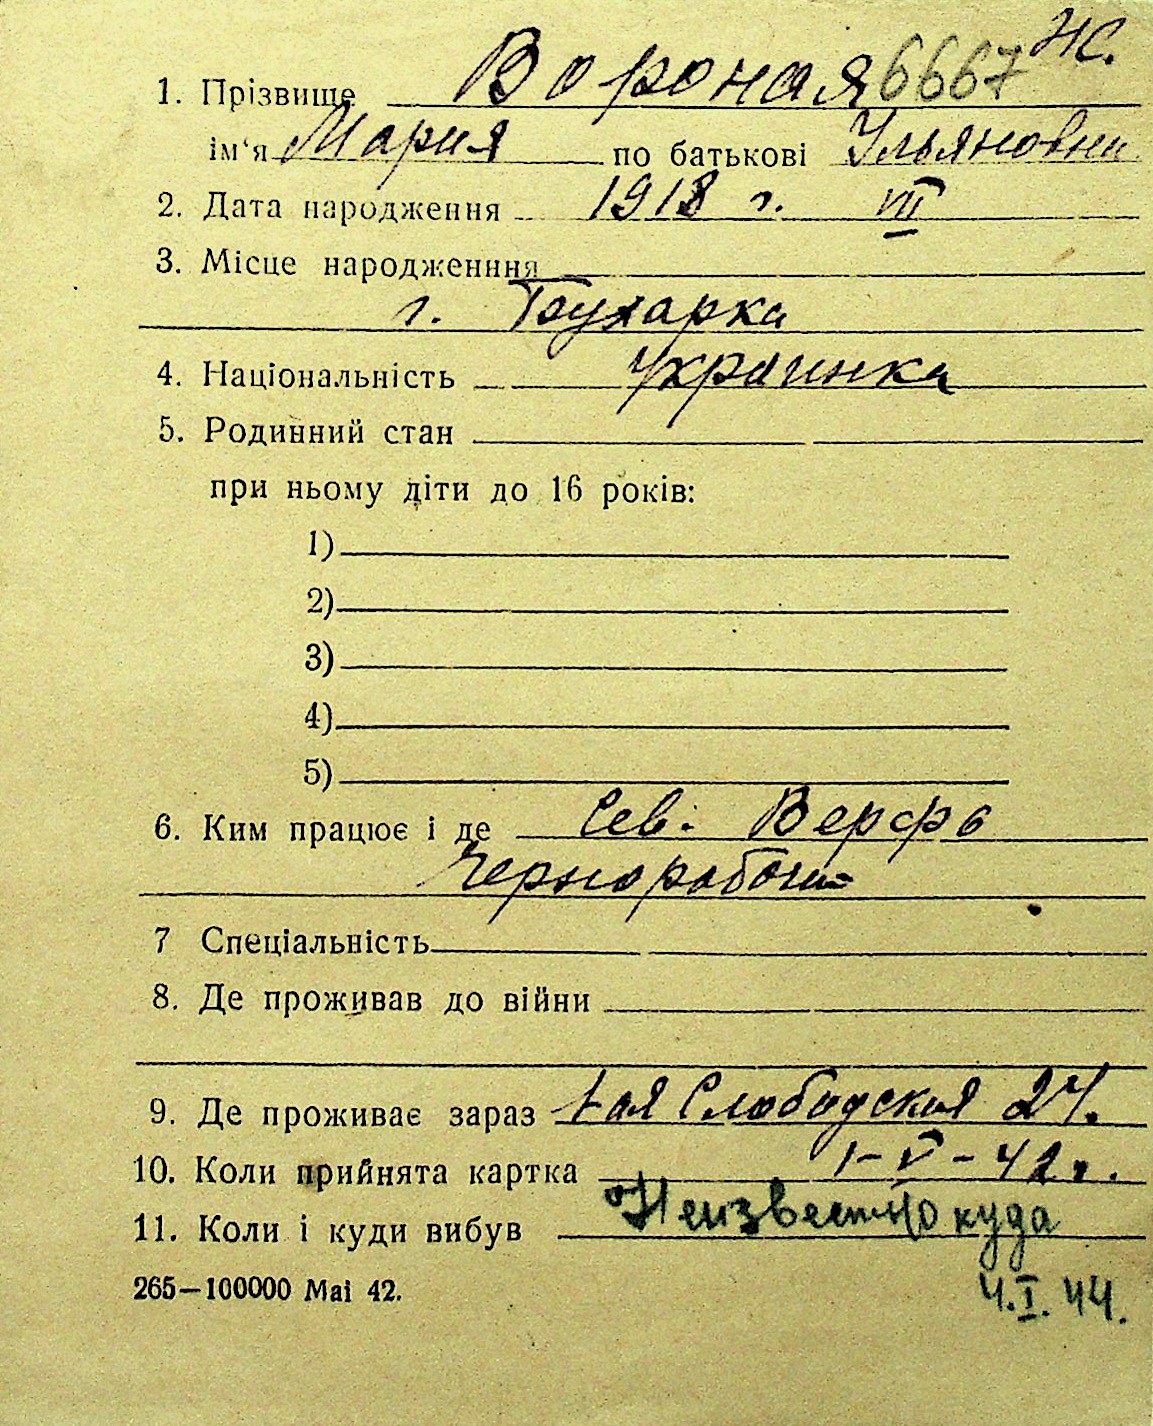 Ж.
1. Прізвище Вороная 6667
ім'я Мария по батькові Ульяновна
2. Дата народження 1918 г. VIII
3. Місце народженння
г. Бухарка
4. Національність Украинка
5. Родинний стан
при ньому діти до 16 років:
1)
2)
3)
4)
5)
6. Ким працює і де Сев. Верфь
Чернорабочий
7 Спеціальність
8. Де проживав до війни
9. Де проживає зараз 1ая Слободская 24.
10. Коли прийнята картка 1-V-42 г.
11. Коли і куди вибув Неизвестно куда
265—100000 Mai 42.
4.I.44.